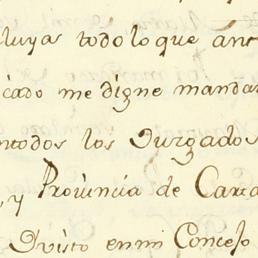 luyas todo lo que ant
icado me digne mandar
entodos los Jurgados
y Provincia de Cara
Dvisto enmi Concejo